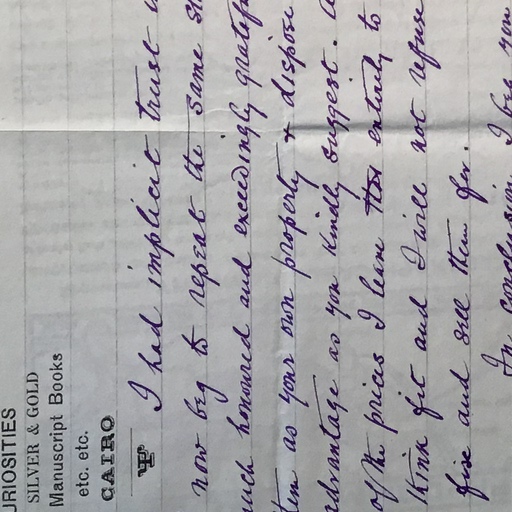 URIOSITIES
SILVER & GOLD
Manuscript Books
etc. etc.
CAIRO
I had implicit trust
now beg to repeat the same
much honoured and exceedingly
as your own property & dispose
advantage as you kindly suggest.
of the prices I leave entirely to
think fit and I will not refuse
fix and sell them for.
In conclusion I beg you